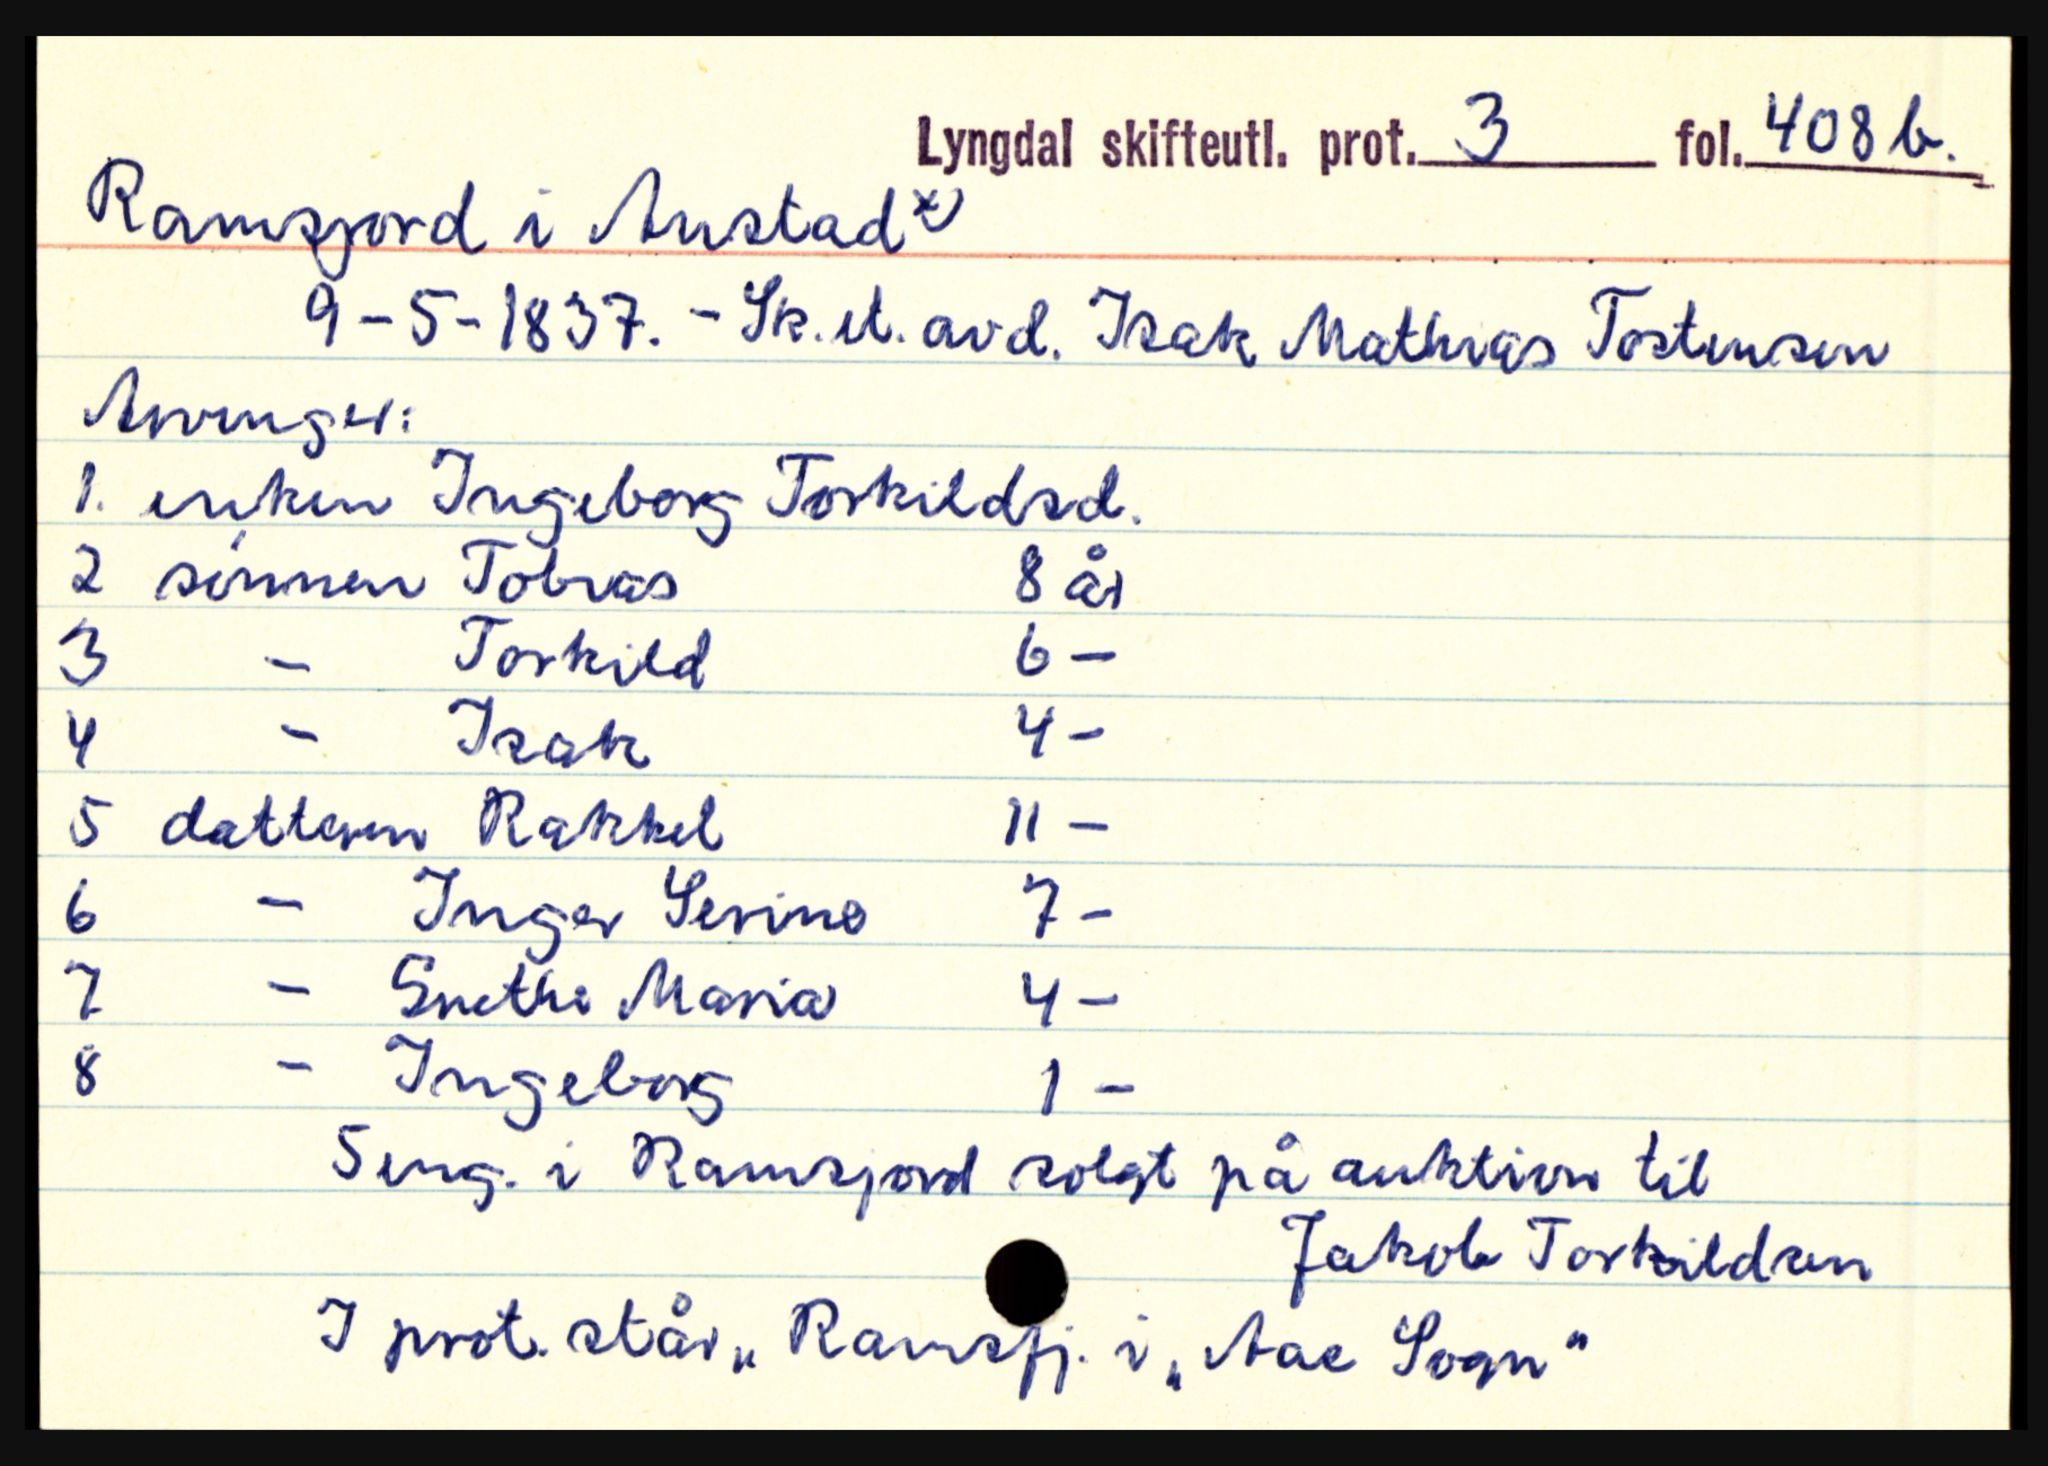 Lyngdal skifteutl. prot. 3 fol. 408 b.
Ramsjord i Austad x)
9-5-1837. - Sk. et. avd. Isak Mathias Tostensen
Arvinger:
1. enken Ingeborg Torkildsd.
2 sønnen Tobias 8 år
3 - Torkild 6 -
4 - Isak 4 -
5 datteren Rakkel 11 -
6 - Inger Serine 7 -
7 - Grethe Maria 4 -
8 - Ingeborg 1 -
5 eng. i Ramsjord solgt på auktion til
Jakob Torkildsen
I prot. står „Ramsfj. i „Aae Sogn"